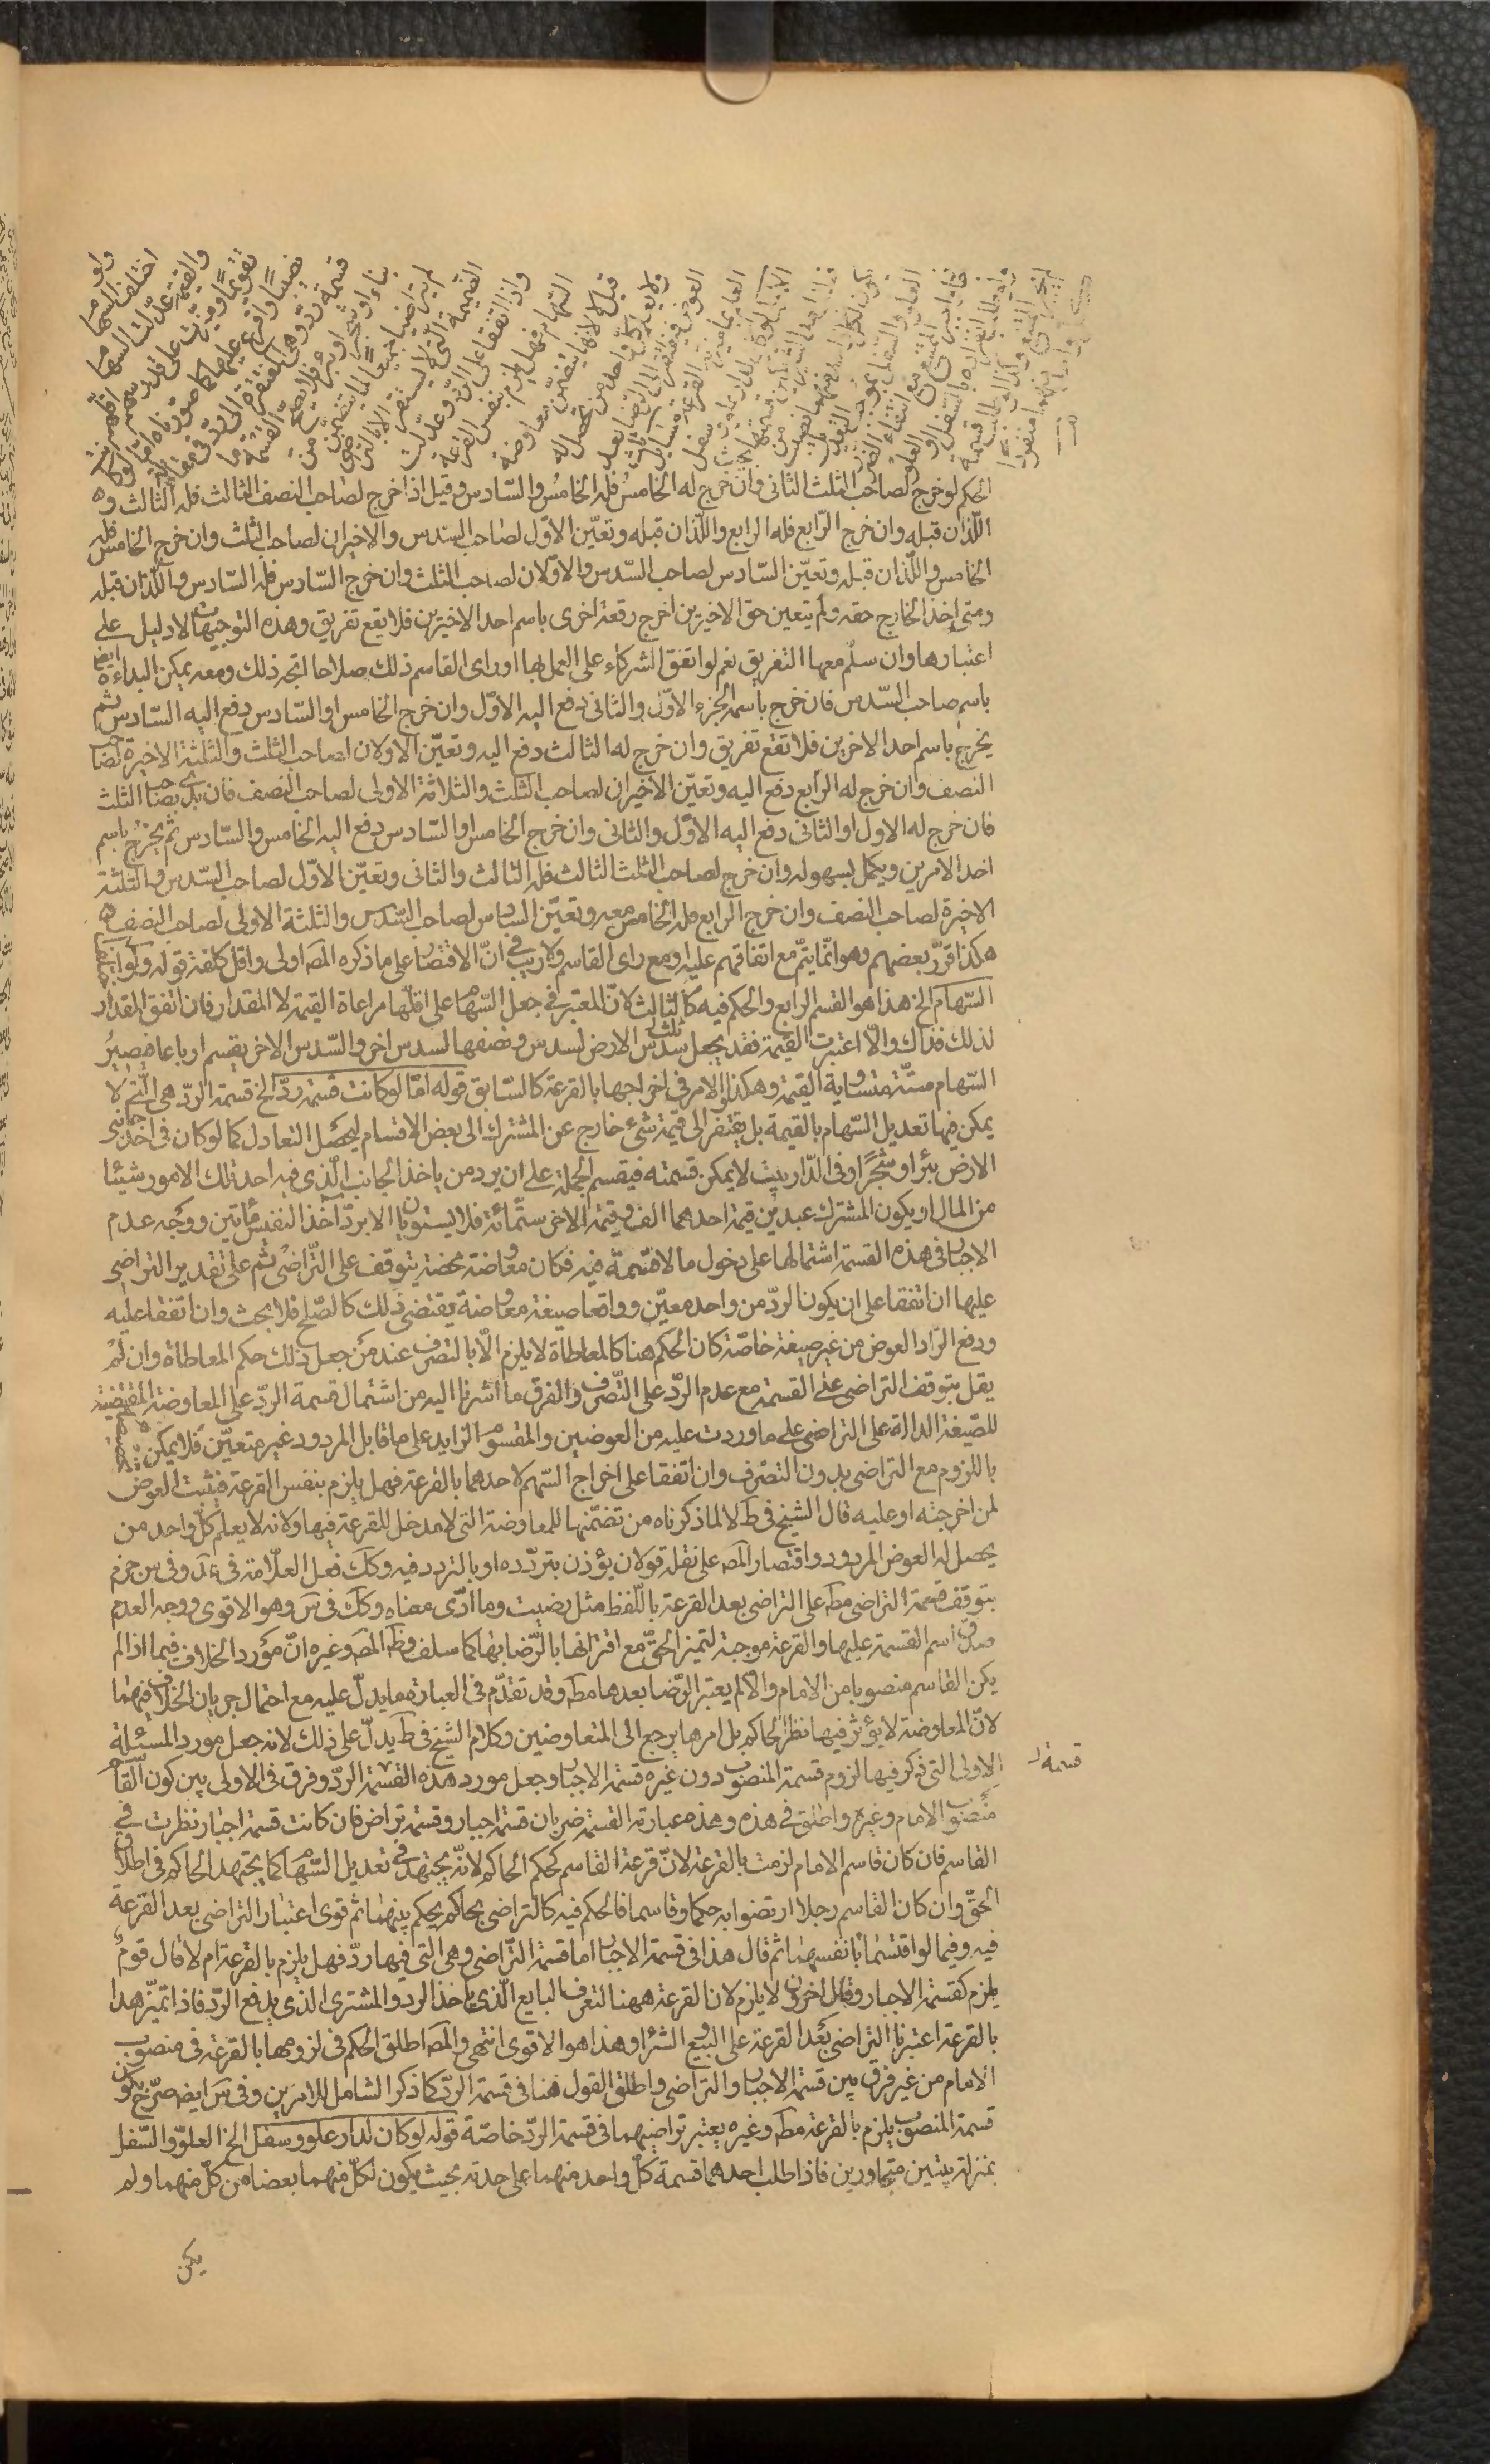 ولو
اختلف السهام
والقيمة عدلت السهام
تقويما وميزت على قدر سهم اقلهم
نصيبا واقرع عليها كما صورناه اما لو كانت
قسمة رد وهى المفتقرة الى رد فى مقابلة
بناء او شجر او بئر فلا تصح القسمة ما
لم يتراضيا جميعا لما يتضمن من
الضميمة التى لا يستقر الا بالتراضى
واذا اتفقا على الرد وعدلت
السهام فهل يلزم بنفس القرعة
قيل لا لانها يتضمن معاوضة
ولا يعلم كل واحد من يحصل له
العوض فيفتقر الى الرضا بعد
العلم بما ميزته القرعة مسائل ثلث
الاولى لو كان لدار علو وسفل
الحكم لو خرج لصاحب الثلث الثانى وان خرج له الخامس فله الخامس والسّادس وقيل اذا خرج لصاحب النصف الثالث فله الثالث و
اللّذان قبله وان خرج الرّابع فله الرابع واللّذان قبله وتعيّن الاوّل لصاحب السّدس والاخيران لصاحب الثلث وان خرج الخامس فله
الخامس واللّذان قبله وتعيّن السّادس لصاحب السّدس والاوّلان لصاحب الثلث وان خرج السّادس فله السّادس واللّذان قبله
ومتى اخذ الخارج حقه ولم يتعين حق الاخيرين اخرج رقعة اخرى باسم احد الاخيرين فلا يقع تفريق وهذه التوجيهات لا دليل على
اعتبارها وان سلم معها التفريق نعم لو اتفق الشركاء على العمل بها او راى القاسم ذلك صلاحا اتجه ذلك ومعه يمكن البداءة ايضا
باسم صاحب السّدس فان خرج باسمه الجزء الاوّل والثانى دفع اليه الاوّل وان خرج الخامس او السّادس دفع اليه السّادس ثم
يخرج باسم احد الاخرين فلا تقع تفريق وان خرج له الثالث دفع اليه وتعيّن الاولان لصاحب الثلث والثلثة الاخيرة لصاحب
النصف وان خرج له الرابع دفع اليه وتعيّن الاخيران لصاحب الثلث والثلاثة الاولى لصاحب النصف فان بدئ بصاحب الثلث
فان خرج له الاول او الثانى دفع اليه الاوّل والثانى وان خرج الخامس او السّادس دفع اليه الخامس والسّادس ثم يخرج باسم
احد الامرين ويكمل بسهوله وان خرج لصاحب الثلث الثالث فله الثالث والثانى وتعيّن الاوّل لصاحب السّدس والثلثة
الاخيرة لصاحب النصف وان خرج الرابع فله الخامس معه وتعيّن السادس لصاحب السّدس والثلثة الاولى لصاحب النصف
هكذا قرّر بعضهم وهو انّما يتمّ مع اتفاقهم عليه او مع راى القاسم ولا ريب فى انّ الاقتصار على ما ذكره المصه اولى واقل كلفة قوله ولو اختلف
السّهام الخ هذا هو القسم الرابع والحكم فيه كالثالث لانّ المعتبر فى جعل السّهام على اقلّها مراعاة القيمة لا المقدار فان اتفق المقدار
لذلك فذاك والّا اعتبرت القيمة فقد يجعل ثلث الارض لسدس ونصفها لسدس اخر والسّدس الاخر يقسم ارباعا فيصير
السّهام ستّة متساوية القيمة وهكذا والامر فى اخراجها بالقرعة كالسّابق قوله امّا لو كانت قسمة ردّ الخ قسمة الرّد هى الّتى لا
يمكن فيها تعديل السّهام بالقيمة بل يفتقر الى قيمة شىء خارج عن المشترك الى بعض الاقسام ليحصل التعادل كما لو كان فى احد جانبى
الارض بئر او شجر او فى الدّار بيت لا يمكن قسمته فيقسم الجملة على ان يرد من ياخذ الجانب الّذى فيه احد تلك الامور شيئا
من المال او يكون المشترك عبدين قيمة احدهما الف وقيمة الاخر ستّمائة فلا يستويان الا بردّ آخذ النفيس مأتين ووجه عدم
الاجبار فى هذه القسمة اشتمالها على دخول ما لا قسمة فيه فكان معاوضة محضة يتوقف على التّراضى ثم على تقدير التراضى
عليها ان اتفقا على ان يكون الردّ من واحد معيّن وواقعا صيغة معاوضة يقتضى ذلك كالصّلح فلا بحث وان اتفقا عليه
ودفع الرّاد العوض من غير صيغة خاصّة كان الحكم هنا كالمعاطاة لا يلزم الّا بالتصرف عند من جعل ذلك حكم المعاطاة وان لم
يقل بتوقف التراضى على القسمة مع عدم الرّد على التّصرف والفرق ما اشرنا اليه من اشتمال قسمة الردّ على المعاوضة المقتضية
للصّيغة الدالة على التراضى على ما وردت عليه من العوضين والمقسوم الزايد على ما قابل المردود غير متعيّن فلا يمكن
باللزوم مع التراضى بدون التصرف وان اتفقا على اخراج السّهم لاحدهما بالقرعة فهل يلزم بنفس القرعة فيثبت العوض
لمن اخرجته او عليه قال الشيخ فى ط لا لما ذكرناه من تضمّنها للمعاوضة التى لا مدخل للقرعة فيها ولانه لا يعلم كلّ واحد من
يحصل له العوض المردود واقتصار المصه على نقله قولا يؤذن بتردّده او بالتردد فيه وكك فعل العلّامة فى عد وفى س جزم
بتوقف قسمة التراضى مطه على التراضى بعد القرعة باللّفظ مثل رضيت وما ادّى معناه وكك فى س وهو الاقوى ووجه العدم
صدق اسم القسمة عليها والقرعة موجبة لتميز الحقّ مع اقترانها بالرّضا بها كما سلف وظه المصه وغيره انّ مورد الخلاف فيما اذا لم
يكن القاسم منصوبا من الامام والّا لم يعتبر الرّضا بعدها مطه وقد تقدّم فى العبارة ما يدلّ عليه مع احتمال جريان الخلاف فيهما
لانّ المعاوضة لا يؤثر فيها نظر الحاكم بل امرها يرجع الى المتعاوضين وكلام الشيخ فى ط يدلّ على ذلك لانه جعل مورد المسئلة
قسمة
الاولى التى ذكر فيها لزوم قسمة المنصوب دون غيره قسمة الاجبار وجعل مورد هذه القسمة الردّ وفرق فى الاولى بين كون القاسم
منصوب الامام وغيره واطلق فى هذه وهذه عبارته القسمة ضربان قسمة اجبار وقسمة تراض فان كانت قسمة اجبار نظرت فى
القاسم فان كان قاسم الامام لزمت بالقرعة لانّ قرعة القاسم كحكم الحاكم لانّه يجتهد فى تعديل السّهام كما يجتهد الحاكم فى اطلاق
الحقّ وان كان القاسم رجلا ارتضوا به حكما وقاسما فالحكم فيه كالتراضى بحاكم يحكم بينهما ثم قوى اعتبار التراضى بعد القرعة
فيه وفيما لو اقتسما بانفسهما ثم قال هذا فى قسمة الاجبار اما قسمة التّراضى وهى التى فيها ردّ فهل يلزم بالقرعة ام لا قال قوم
يلزم كقسمة الاجبار وقال اخرون لا يلزم لان القرعة ههنا لتعرف البايع الّذى ياخذ الرد والمشترى الذى يدفع الرّد فاذا تميّز هذا
بالقرعة اعتبرنا التراضى بعد القرعة على البيع والشراء وهذا هو الاقوى انتهى والمصه اطلق الحكم فى لزومها بالقرعة فى منصوب
الامام من غير فرق بين قسمة الاجبار والتراضى واطلق القول هنا فى قسمة الردّ كما ذكر الشامل للامرين وفى س ايضه صرّح بكون
قسمة المنصوب يلزم بالقرعة مطه وغيره يعتبر تراضيهما فى قسمة الردّ خاصّة قوله لو كان لدار علو وسفل الخ العلوّ والسّفل
بمنزلة بيتين متجاورين فاذا طلب احدهما قسمة كلّ واحد منهما على حدته بحيث يكون لكلّ منهما بعضا من كلّ منهما ولم
يكن